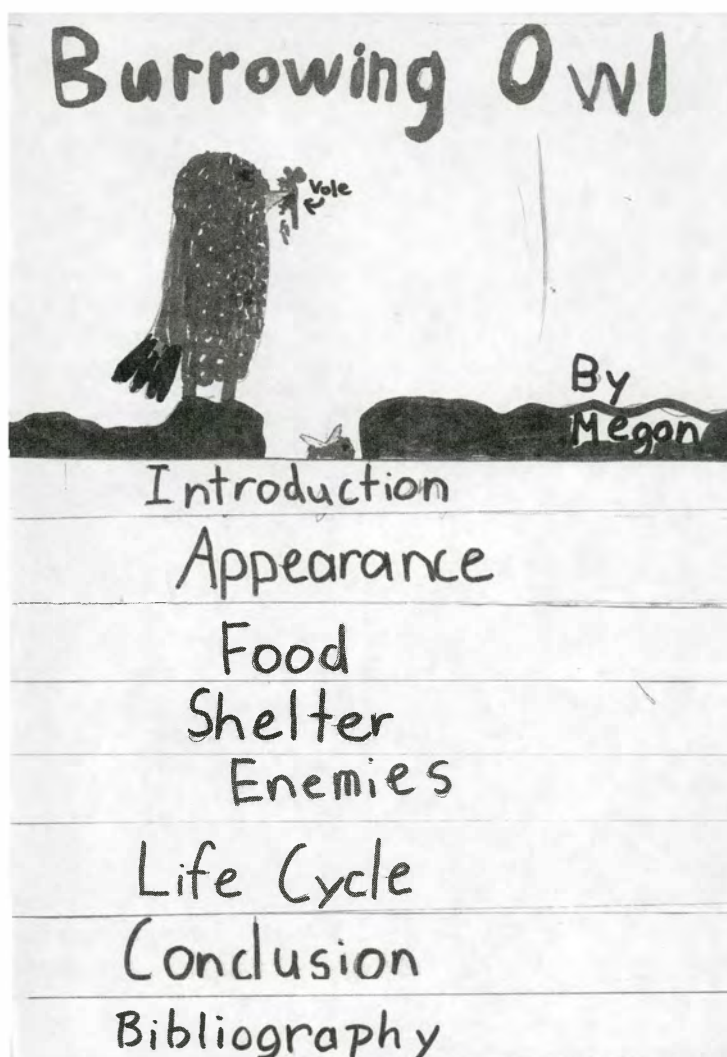 Burrowing Owl
Vole
By
Megan
Introduction
Appearance
Food
Shelter
Enemies
Life Cycle
Conclusion
Bibliography